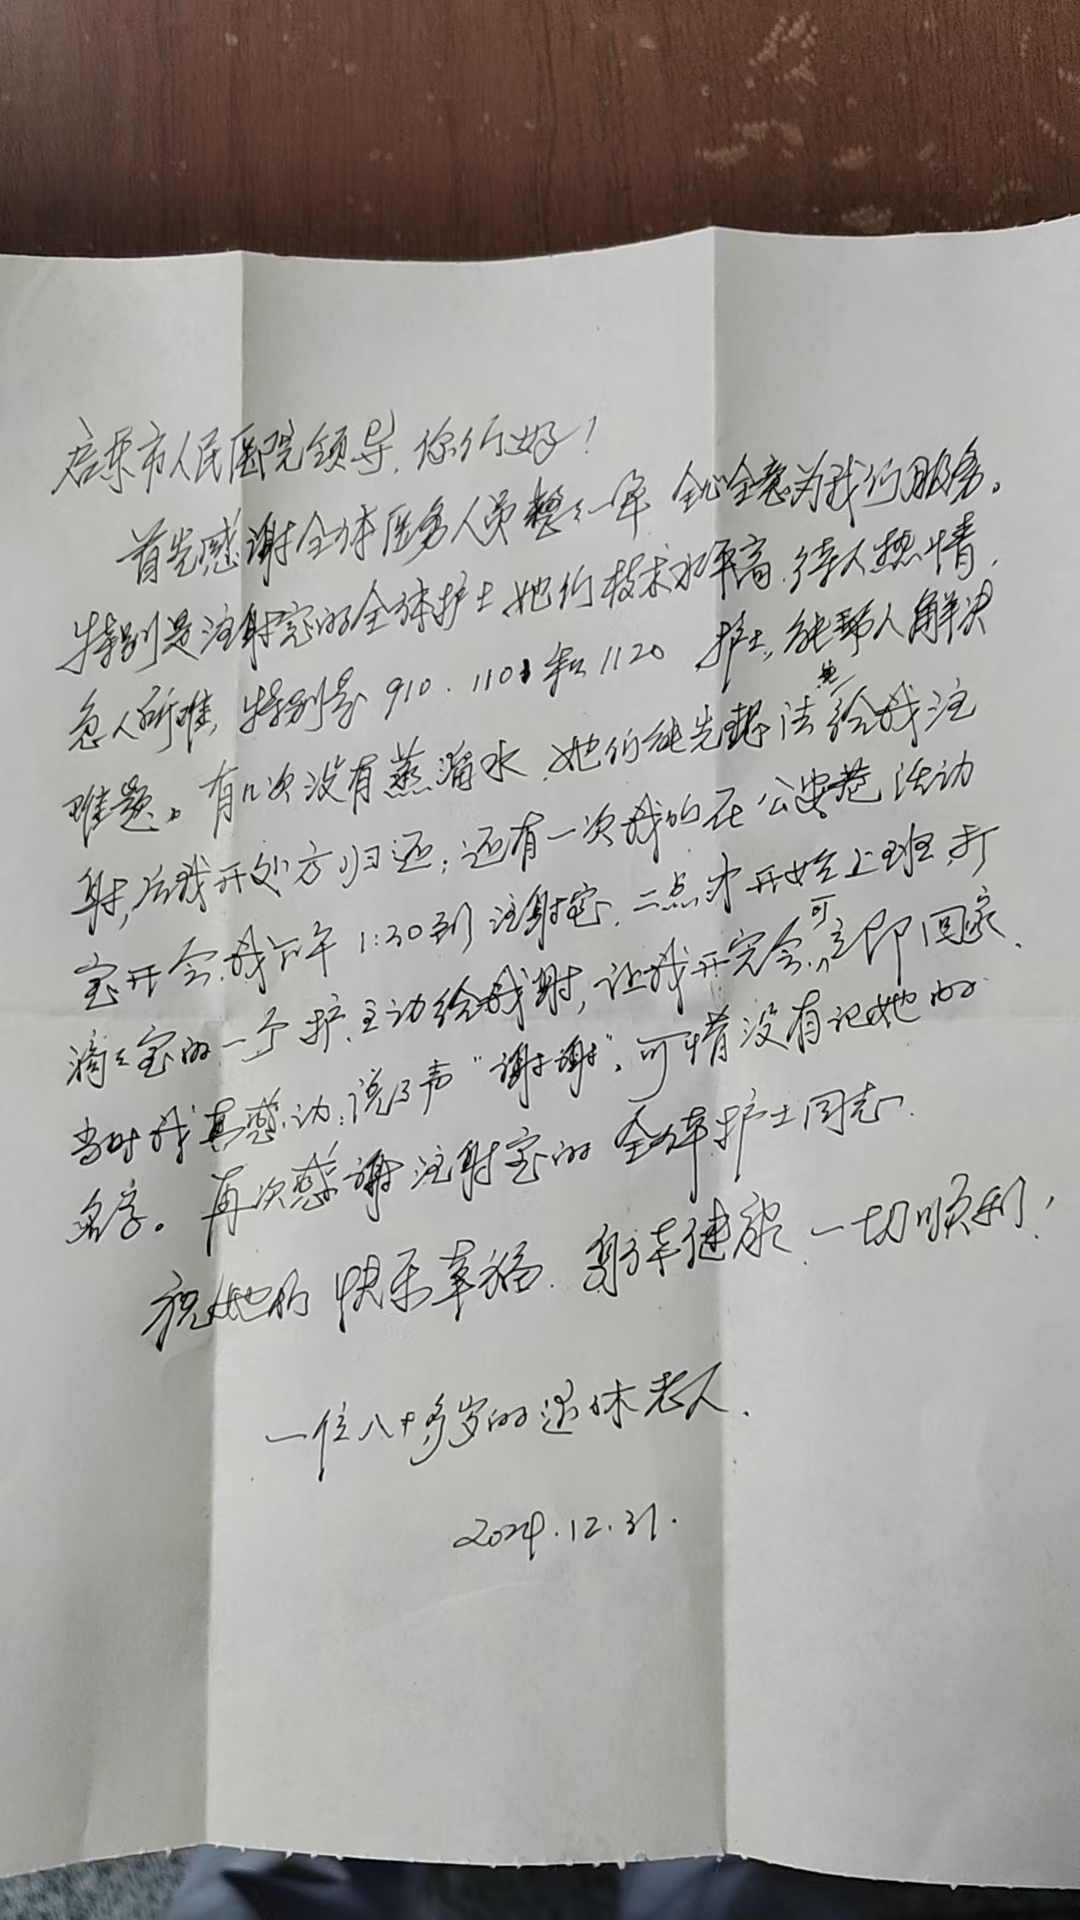 启东市人民医院领导，你们好！
首先感谢全体医务人员整整一年全心全意为我们服务。
特别是注射室的全体护士她们技术水平高，待人热情，
急人所难，特别是910、1101和1120护士，能帮人解决
难题。有几次没有蒸溜水，她们能先想办法给我注
射，后我开处方归还；还有一次我们在公安巷活动
室开会，我下午1:30到注射室，二点才开始上班，打
滴滴室的一个护士主动给我射，让我开完会可立即回家、
当时我真感动，说了声“谢谢”。可惜没有记她的
名字。再次感谢注射室的全体护士同志。
祝她们快乐幸福、身体健康、一切顺利！
一位八十多岁的退休老人、
2024.12.31.